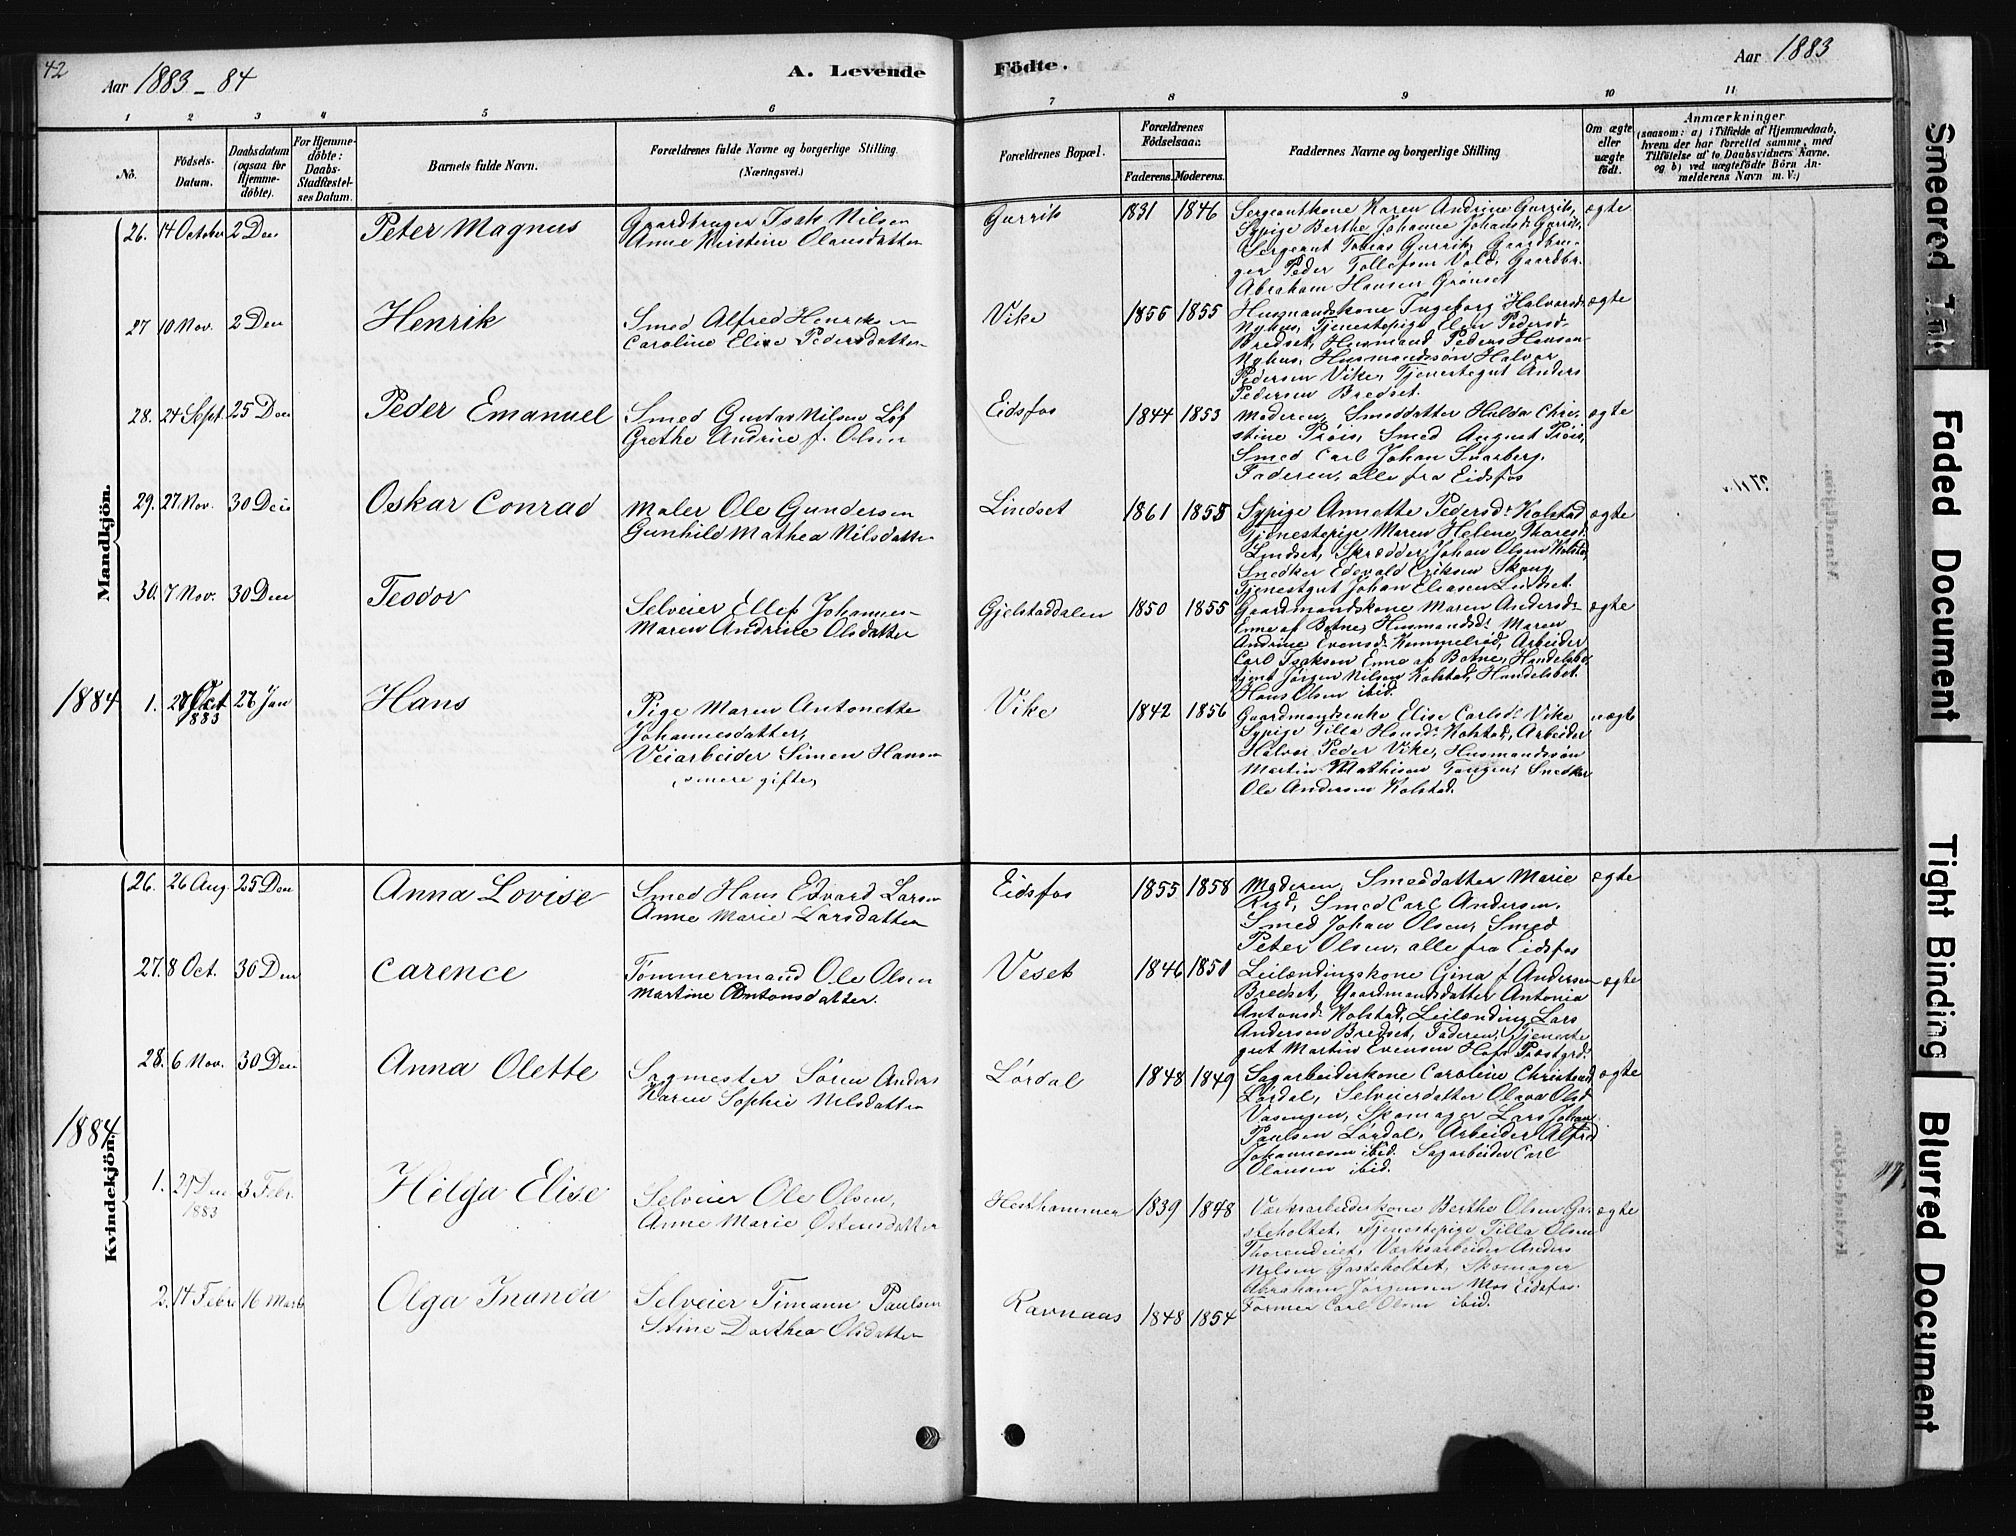 42
Aar 1883-84
A. Levende
Födte.
Aar 1883
1 2 3 4 5 6 7 8 9 10 11
No.
Födsels-
Datum.
Daabsdatum
(ogsaa for
Hjemme-
döbte).
For Hjemme-
döbte:
Daabs-
Stadfæstel-
ses Datum.
Barnets fulde Navn.
Forældrenes fulde Navne og borgerlige Stilling
(Næringsvei.)
Forældrenes Bopæl.
Forældrenes
Födselsaar.
Faderens. Moderens.
Faddernes Navne og borgerlige Stilling
Om ægte
eller
uægte
födt.
Anmærkninger
(saasom: a) i Tilfælde af Hjemmedaab,
hvem der har forrettet samme, med
Tilföielse af to Daabsvidners Navne,
og b) ved uægtefödte Börn An-
melderens Navn m. V.)
Mandkjön.
26. 14 October 2 Dec Peter Magnus
Gaardbruger Isak Nilsen
Anne Kirstine Olausdatter
Gurrik 1831 1846
Sergeantkone Karen Andrine Gurrik,
Sypige Berthe Johanne Johansd: Gurrik,
Sergeant Tobias Gurrik, Gaardbru-
ger Peder Tollefsen Vold, Gaardbr.
Abraham Hansen Grønset
ægte
27 10 Nov. 2 Dec Henrik
Smed Alfred Henriksen
Caroline Elise Pedersdatter
Vike 1856 1855
Husmandskone Ingeborg Halvorsd:
Nyhus, Tjenestepige Elen Pedersd-
Bredset, Husmand Peder Hansen
Nyhus, Husmandssøn Halvor
Pedersen Vike, Tjenestegut Anders
Pedersen Bredset.
ægte
28. 24 Sept. 25 Dec Peder Emanuel
Smed Gustav Nilsen Löf
Grethe Andrine f. Olsen
Eidsfos 1844 1853
Moderen, Smeddatter Hulda Chri-
stine Prøis, Smed August Prøis,
Smed Carl Johan Snarberg,
Faderen, alle fra Eidsfos
ægte
29. 27 Nov. 30 Dec Oskar Conrad
Maler Ole Gundersen
Gunhild Mathea Nilsdatter
Lindset 1861 1858
Sypige Annette Pedersd: Kolstad
Tjenestepige Maren Helene Thoresd:
Lindset, Skrædder Johan Olsen Kolstad
Snedker Edevald Eriksen Skaug,
Tjenestgut Johan Eliasen Lindset.
ægte
30. 7 Nov. 30 Dec Teodor
Selveier Ellef Johannes-
Maren Andrine Olsdatter
Gjelstaddalen 1850 1855
Gaardmandskone Maren Andersd:
Enne af Botne, Husmandsd: Maren
Andrine Evensd: Kommelrød, Arbeider
Carl Isaksen Enne af Botne, Handelsbe-
tjent Jørgen Nilsen Kolstad, Handelsbet.
Hans Olsen ibid.
ægte
1884
1. 28 Oct 1883 27 Jan Hans
Pige Maren Antonette
Johannesdatter,
Veiarbeider Simen Hansen
senere gifte
Vike 1842 1856
Gaardmandsenke Elise Carlsd: Vike
Sypige Tilla Hansd: Kolstad, Arbeider
Halvor Peder Vike, Husmandssøn
Martin Mathisen Tangen, Snedker
Ole Andersen Kolstad.
uægte
Kvindekjön.
26. 26 Aug. 25 Dec Anna Lovise
Smed Hans Edvard Larsen
Anne Marie Larsdatter
Eidsfos 1855 1858
Moderen, Smeddatter Marie
Rud, Smed Carl Andersen,
Smed Johan Olsen, Smed
Peter Olsen, alle fra Eidsfos
ægte
27. 8 Oct. 30 Dec Carence
Tømmermand Ole Olsen
Martine Antonsdatter.
Veset 1846 1851
Leilændingskone Gina f Andersen
Bredset, Gaardmandsdatter Antonia
Antonsd: Kolstad, Leilænding Lars
Andersen Bredset, Faderen, Tjeneste-
gut Martin Evensen Hofs Præstgrd:
ægte
28. 6 Nov. 30 Dec Anna Olette
Sagmester Sören Anders
Karen Sophie Nilsdatter
Lørdal 1848 1849
Sagarbeiderkone Caroline Christensd
Lørdal, Selveiersdatter Olava Olsd
Vasengen, Skomager Lars Johan
Paulsen Lørdal, Arbeider Alfred
Johannesen ibid. Sagarbeider Carl
Olausen ibid.
ægte
1884
1. 21 Dec 1883 3 Febr. Helga Elise
Selveier Ole Olsen,
Anne Marie Østensdatter
Hesthammer 1839 1848
Værksarbeiderkone Berthe Olsen Ga-
steholtet, Tjenestepige Tilla Olsen
Thorendeiet, Værksarbeider Anders
Nilsen Gasteholtet, Skomager
Abraham Jørgensen Moe Eidsfos.
Former Carl Olsen ibid.
ægte
2. 14 Febr 16 Marts Olga Inanda
Selveier Timann Paulsen
Stine Dorthea Olsdatter
Ravnaas 1848 1854
Smeared Ink
Faded Document
Tight Binding
Blurred Document